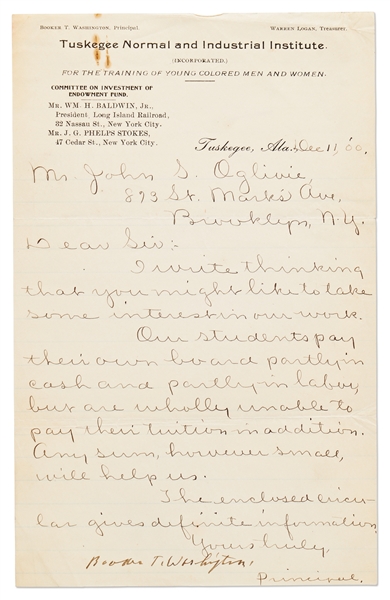 BOOKER T. WASHINGTON, Principal. WARREN LOGAN, Treasurer.
Tuskegee Normal and Industrial Institute.
(INCORPORATED.)
FOR THE TRAINING OF YOUNG COLORED MEN AND WOMEN.
COMMITTEE ON INVESTMENT OF
ENDOWMENT FUND.
MR. WM. H. BALDWIN, JR.,
President, Long Island Railroad,
32 Nassau St., New York City.
MR. J. G. PHELPS STOKES,
47 Cedar St., New York City.
Tuskegee, Ala., Dec 11, '00.
Mr. John S. Ogilvie,
893 St. Mark's Ave.
Brooklyn, N.Y.
Dear Sir:-
I write thinking
that you might like to take
some interest in our work.
Our students pay
their own board partly in
cash and partly in labor,
but are wholly unable to
pay their tuition in addition.
Any sum, however small,
will help us.
The enclosed circu-
lar gives definite information.
Yours truly,
Booker T. Washington,
Principal.